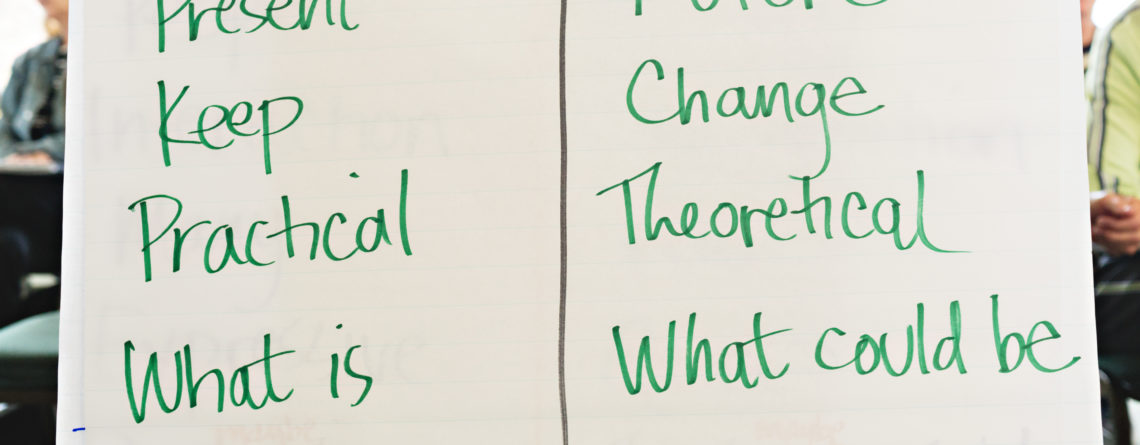 Present
Future
Keep
Change
Practical
Theoretical
What is
What could be